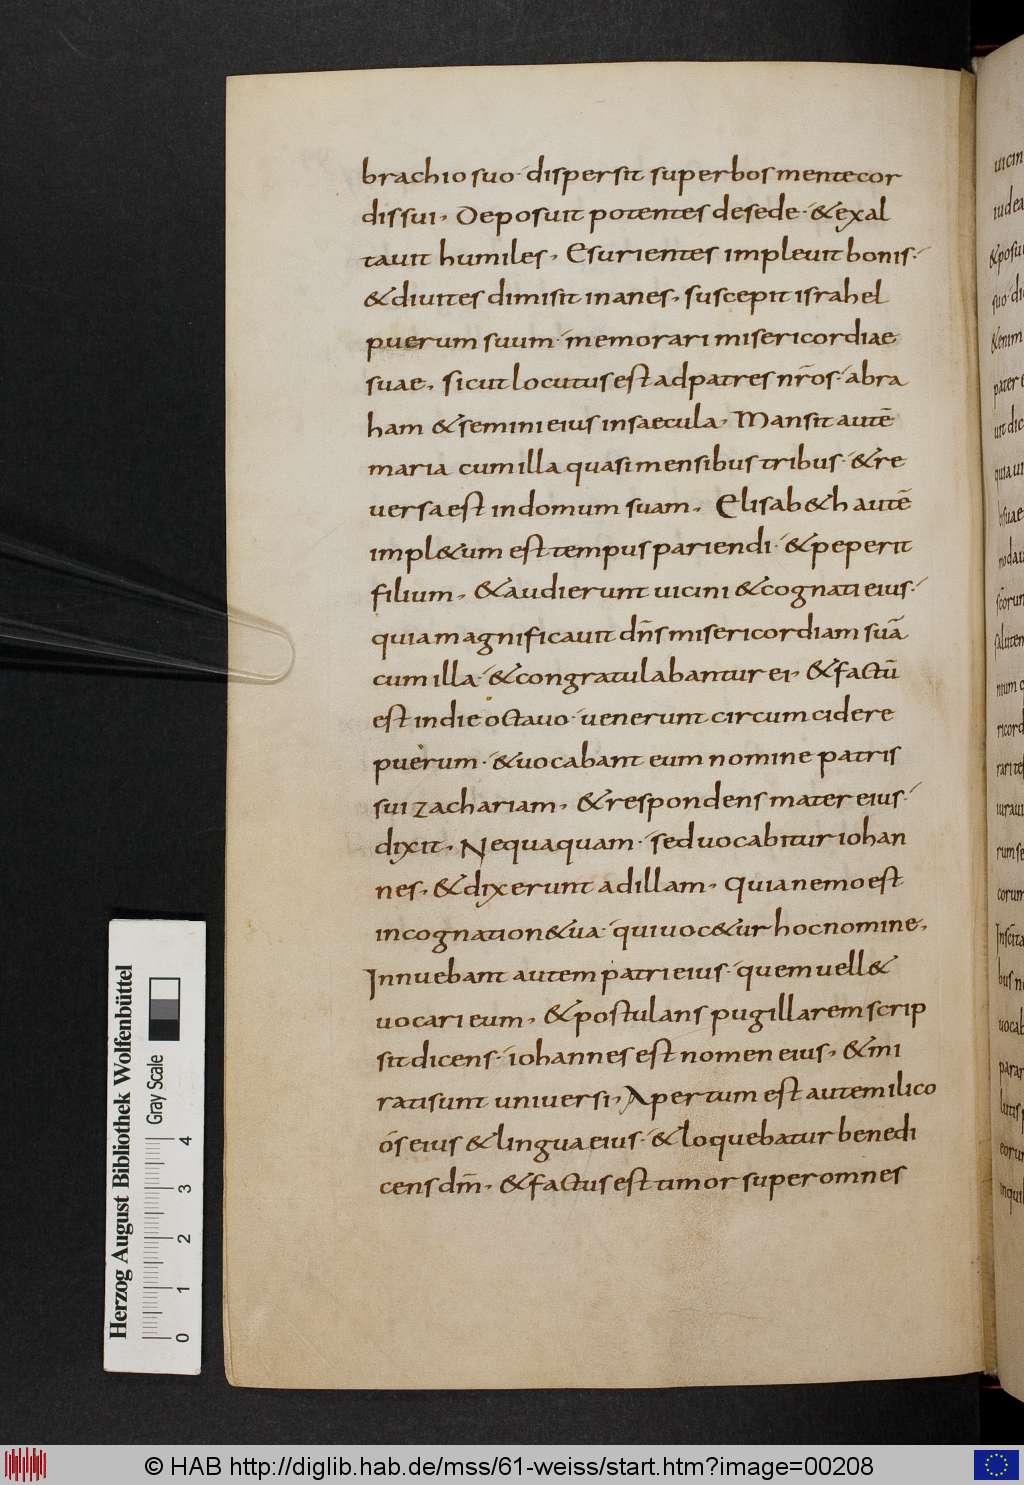 brachio suo· dispersit superbos mente cor
dis sui, Deposuit potentes de sede· & exal
tavit humiles, Esurientes implevit bonis·
& divites dimisit inanes, suscepit israhel
puerum suum· memorari misericordiae
suae, sicut locutus est ad patres nr̄os· abra
ham & semini eius in saecula, Mansit autē
maria cum illa quasi mensibus tribus· & re
versa est in domum suam, Elisab&h autē
impl&um est tempus pariendi· & peperit
filium, & audierunt vicini & cognati eius·
quia magnificavit dn̄s misericordiam suā
cum illa· & congratulabantur ei, & factū
est in die octavo· venerunt circumcidere
puerum· & vocabant eum nomine patris
sui zachariam, & respondens mater eius·
dixit, Nequaquam· sed vocabitur iohan
nes, & dixerunt ad illam, quia nemo est
in cognatione tua· qui voc&ur hoc nomine,
Innuebant autem patri eius· quem vell&
vocari eum, & postulans pugillarem scrip
sit dicens· iohannes est nomen eius, & mi
rati sunt universi, Apertum est autem ilico
os eius & lingua eius· & loquebatur benedi
cens dm̄, & factus est timor super omnes
Herzog August Bibliothek Wolfenbüttel
Gray Scale
0 1 2 3 4
© HAB http://diglib.hab.de/mss/61-weiss/start.htm?image=00208